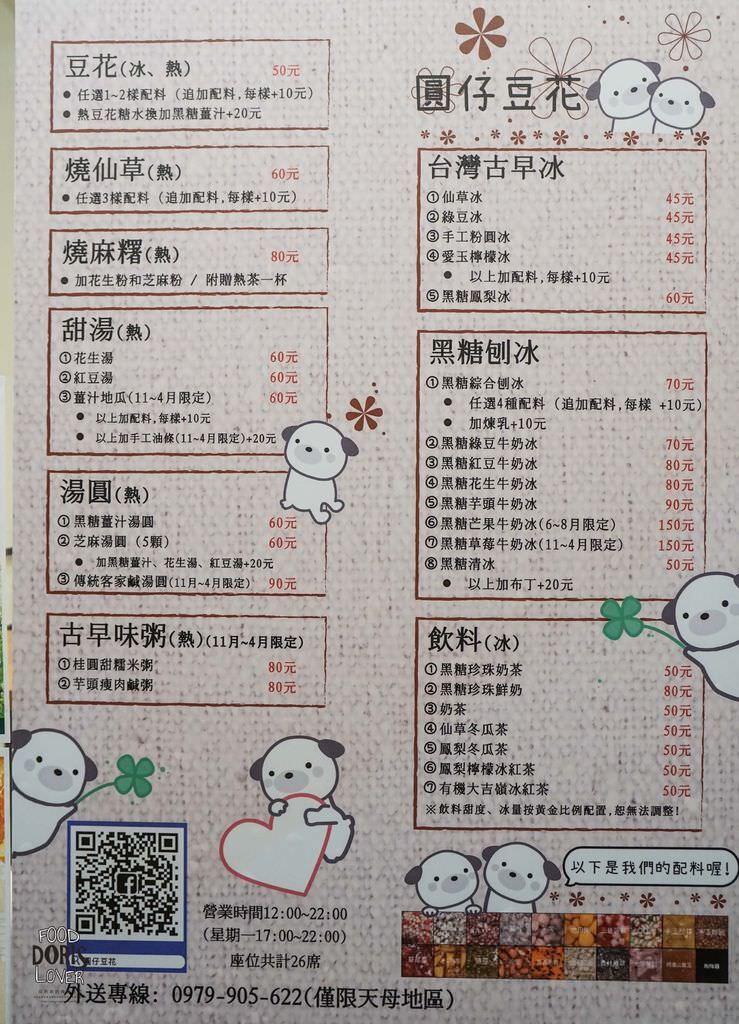 豆花(冰、熱) 50元
● 任選1~2樣配料 (追加配料,每樣+10元)
● 熱豆花糖水換加黑糖薑汁+20元
燒仙草(熱) 60元
● 任選3樣配料 (追加配料,每樣+10元)
燒麻糬(熱) 80元
● 加花生粉和芝麻粉 / 附贈熱茶一杯
甜湯(熱)
①花生湯 60元
②紅豆湯 60元
③薑汁地瓜(11~4月限定) 60元
● 以上加配料,每樣+10元
● 以上加手工油條(11~4月限定)+20元
湯圓(熱)
①黑糖薑汁湯圓 60元
②芝麻湯圓 (5顆) 60元
● 加黑糖薑汁、花生湯、紅豆湯+20元
③傳統客家鹹湯圓(11月~4月限定) 90元
古早味粥(熱)(11月~4月限定)
①桂圓甜糯米粥 80元
②芋頭瘦肉鹹粥 80元
圓仔豆花
台灣古早冰
①仙草冰 45元
②綠豆冰 45元
③手工粉圓冰 45元
④愛玉檸檬冰 45元
● 以上加配料,每樣+10元
⑤黑糖鳳梨冰 60元
黑糖刨冰
①黑糖綜合刨冰 70元
● 任選4種配料 (追加配料,每樣 +10元)
● 加煉乳+10元
②黑糖綠豆牛奶冰 70元
③黑糖紅豆牛奶冰 80元
④黑糖花生牛奶冰 80元
⑤黑糖芋頭牛奶冰 90元
⑥黑糖芒果牛奶冰(6~8月限定) 150元
⑦黑糖草莓牛奶冰(11~4月限定) 150元
⑧黑糖清冰 50元
● 以上加布丁+20元
飲料(冰)
①黑糖珍珠奶茶 50元
②黑糖珍珠鮮奶 80元
③奶茶 50元
④仙草冬瓜茶 50元
⑤鳳梨冬瓜茶 50元
⑥鳳梨檸檬冰紅茶 50元
⑦有機大吉嶺冰紅茶 50元
※飲料甜度、冰量按黃金比例配置,恕無法調整!
以下是我們的配料喔!
營業時間12:00~22:00
(星期一17:00~22:00)
座位共計26席
圓仔豆花
FOOD
DORIS
LOVER
外送專線: 0979-905-622(僅限天母地區)